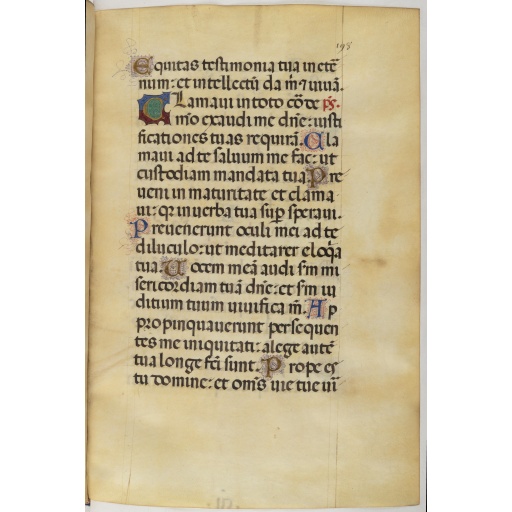 195
Equitas testimonia tua in etē
num: et intellectū da m̄ ⁊ vivā.
Clamavi in toto cōr̄de p̄s.
m̄o exaudi me dn̄e: iusti
ficationes tuas requirā. Cla
mavi ad te salvum me fac: ut
custodiam mandata tua. Pre
veni in maturitate et clama
vi: qr̄ in verba tua sup̄ speravi.
Prevenerunt oculi mei ad te
diluculo: ut meditarer eloq̄a
tua. Vocem meā audi s̄m mi
sericordiam tuā dn̄e: et s̄m iu
ditium tuum vivifica m̄. Ap
propinquaverunt persequen
tes me iniquitati: a lege autē
tua longe fc̄i sunt. Prope es
tu domine: et om̄s vie tue